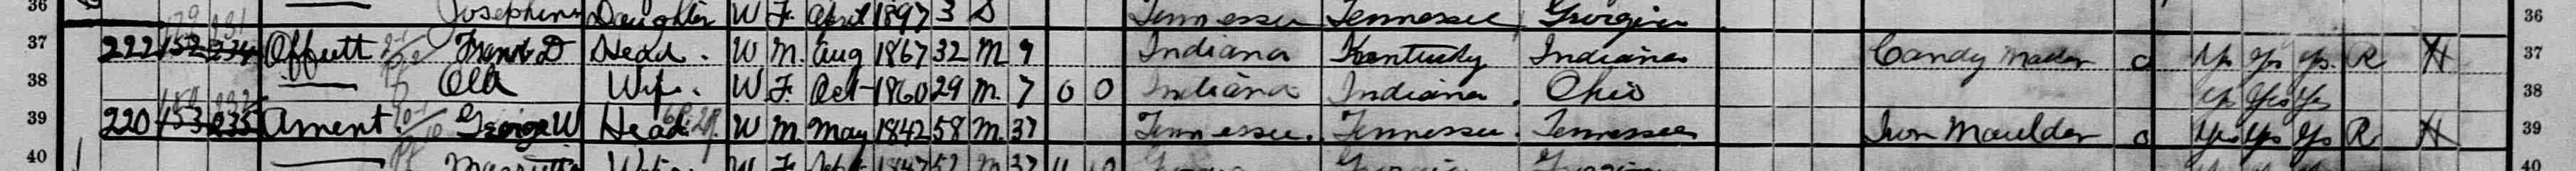 36 Josephine Daughter W F April 1897 3 S Tennessee Tennessee Georgia 36
37 222 152 234 Offutt Frank D Head W M Aug 1867 32 M 7 Indiana Kentucky Indiana Candy Maker 0 Yes Yes Yes R H 37
38 Olla Wife W F Oct 1860 29 M 7 0 0 Indiana Indiana Ohio Yes Yes Yes 38
39 220 153 235 Ament George W Head W M May 1842 58 M 37 Tennessee Tennessee Tennessee Iron Moulder 0 Yes Yes Yes R H 39
40 Wife W F Sept 1847 52 M 37 11 Georgia Georgia 40